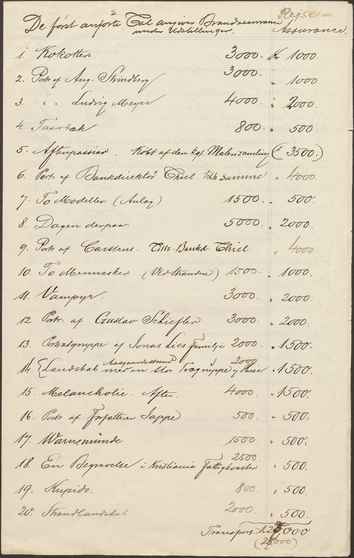 De først anførte Tal angiver Brandassurance
under Udstillinger. Assurance.
1 Kokotten 3000. 1000
2. Port. af Aug. Strindberg 3000. 1000
3. " " Ludvig Meyer 4000. 2000
4. 800. 500
5. Aftenpassiar. Købt af den kgl Malerisamling (3500.)
6. Port. af Bankdirektør Thiel 4000
7. To Modeller (Anlæg) 1500. 500
8 Dagen derpaa 5000. 2000
9. Port. af Carstens. Thiel 4000
10. To Mennesker (Ved Stranden) 1500. 1000.
11. Vampyr 3000. 2000
12. Portr. af Gustav Schiefler 3000. 2000
13. af Jonas Lies Familje 2000. 1500.
14. Landskab med en stor Trægruppe 2000 1500.
15. Melankolie. Aften. 4000. 1500.
16. Port. af Forfatter 500. 500.
17. Warnemünde 1500. 500.
18. En Begravelse i Kristiania 2500 500.
19. Kupido. 800. 500.
20. Strandlandskab 2000. 500.
Transport